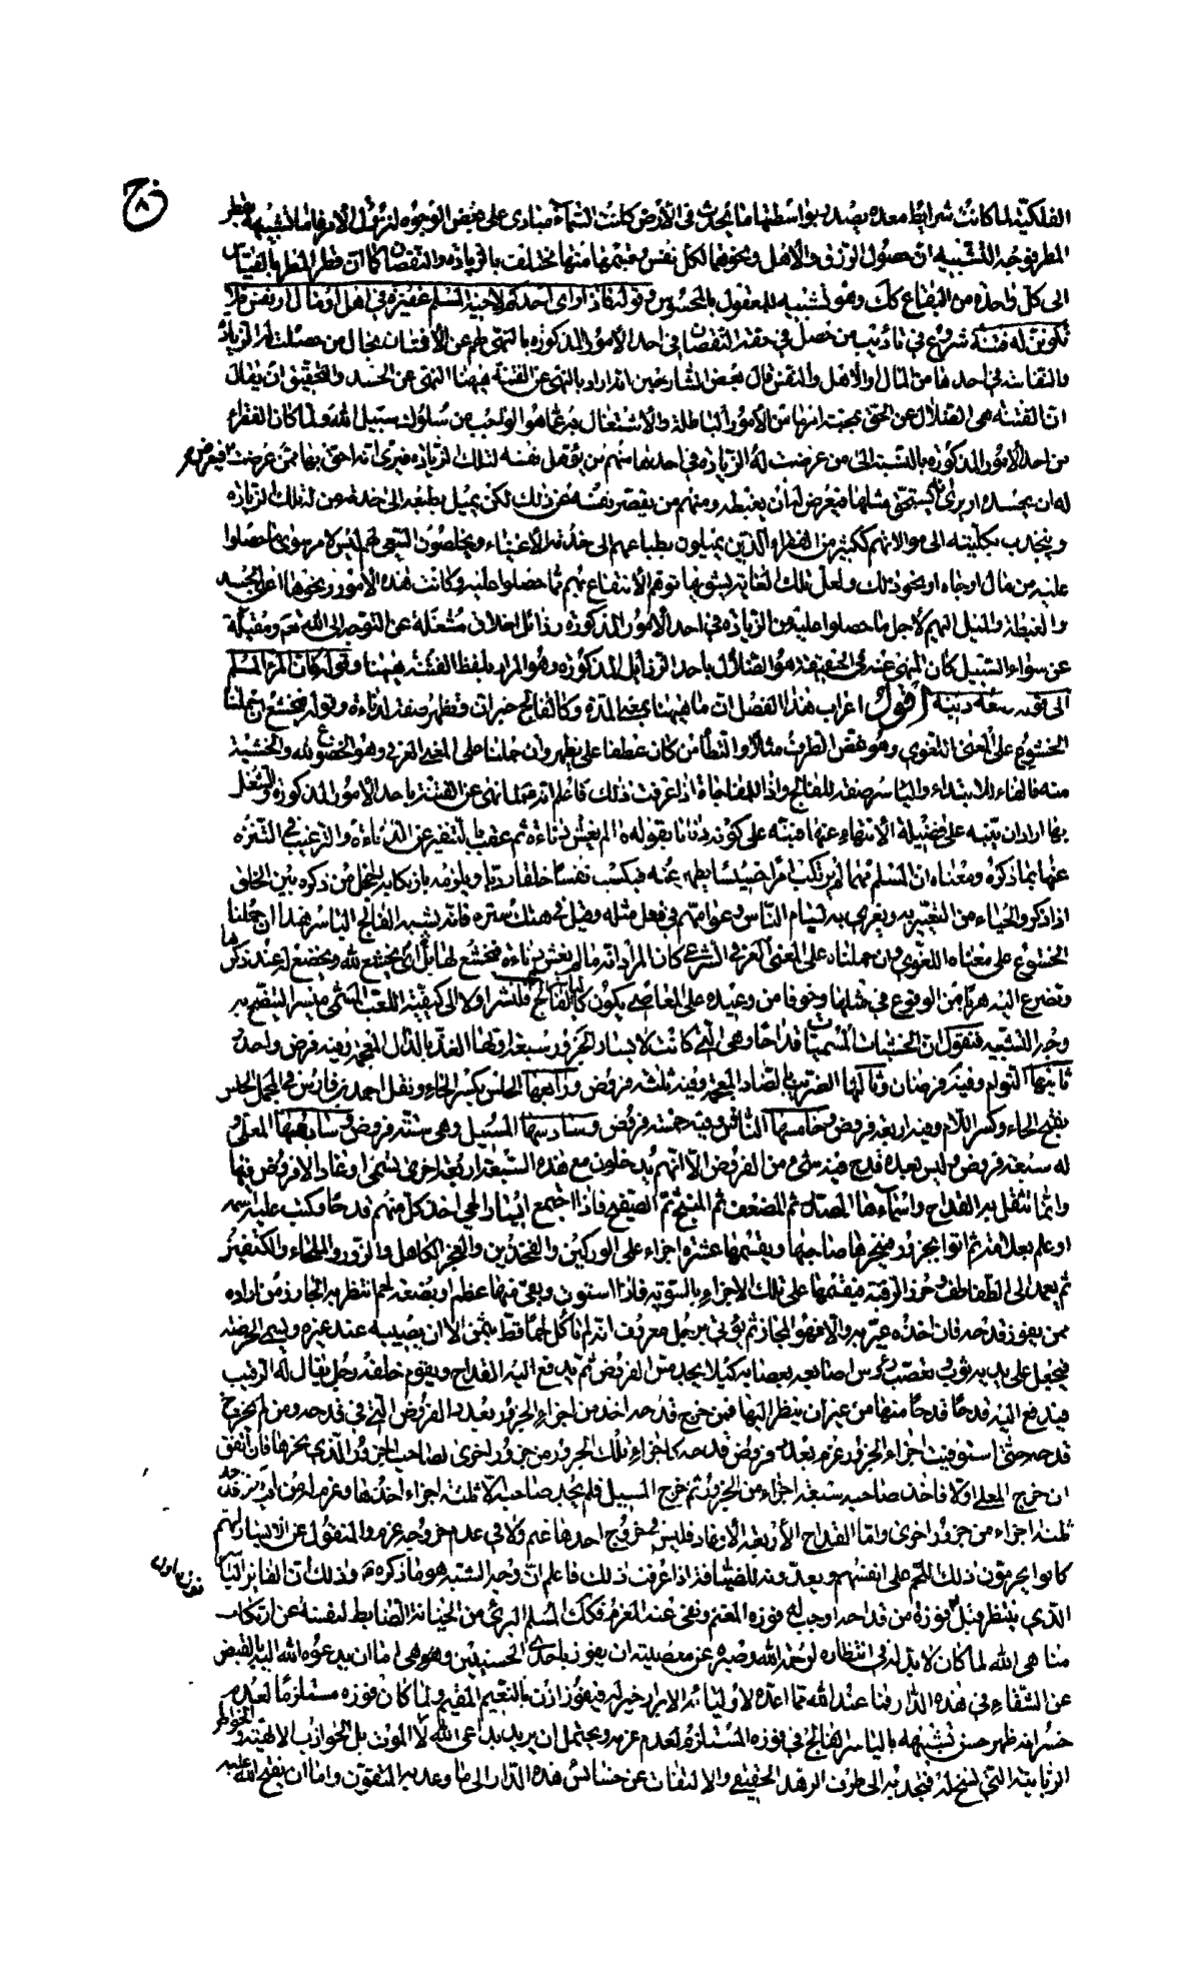 الفلكية لما كانت شرايط معدة يصدر بواسطتها ما يحدث في الأرض كانت السماء مبادي على بعض الوجوه لنزول الأمر فاما تشبيهه بقطر
المطر فوجه التشبيه ان حصول الرزق والأهل ونحوهما لكل نفس وقسمها منها مختلف بالزيادة والنقصان كما ان قطر المطر بالقياس
الى كل واحدة من البقاع كك وهو تشبيه للمعقول بالمحسوس وقوله فاذا راى احدكم لاخيه المسلم غفيرة في اهل او مال او نفس فلا
تكونن له فتنة شروع في تأديب من حصل في حقه النقصان في احد الأمور المذكورة بالنهي لهم عن الافتتان بحال من حصلت له الزيادة
والنفاسة في احدها من المال والأهل والنفس قال بعض الشارحين اراد بالنهي عن الفتنة ههنا النهي عن الحسد والتحقيق ان يقال
ان الفتنة هي الضلال عن الحق بمحبة امر ما من الأمور الباطلة والاشتغال به عما هو الواجب من سلوك سبيل الله ولما كان الفقراء
من احد الأمور المذكورة بالنسبة الى من عرضت له الزيادة في احدها منهم من يؤهل نفسه لتلك الزيادة فيرى انه احق بها ممن عرضت له فيعرض
له ان يحسده او يرى انه يستحق مثلها فيعرض له ان يغبطه ومنهم من يقصر نفسه عن ذلك لكن يميل بطبعه الى خدمة من له تلك الزيادة
وينجذب بكليته الى موالاتهم ككثير من الفقراء الذين يميلون بطباعهم الى خدمة الاغنياء ويخلصون السعي لهم ليس لامر سوى ما حصلوا
عليه من مال او جاه او نحو ذلك ولعل تلك الغاية يشوبها توهم الانتفاع بهم مما حصلوا عليه وكانت هذه الأمور ونحوها اعني الحسد
والغبطة والميل اليهم لأجل ما حصلوا عليه من الزيادة في احد الأمور المذكورة رذائل اخلاق مشغلة عن التوجه الى الله تعم ومقبلة
عن سواء السبيل كان المنهي عنه في الحقيقة هو الضلال باحد الرذائل المذكورة وهو المراد بلفظ الفتنة ههنا وقوله فان المرء المسلم
الى قوله ومعه دينه اقول اعراب هذا الفصل ان ما ههنا بمعنى المدة وكالفالج خبر ان وتظهر صفة لدناءة وقوله فيخشع ان حملنا
الخشوع على المعنى اللغوي وهو غض الطرف مثلا والتطأمن كان عطفا على يظهر وان حملناه على المعنى العرفي وهو الخضوع لله والخشية
منه فالفاء للابتداء والياسر صفة للفالج واذا للمفاجاة اذا عرفت ذلك فاعلم انه ع لما نهى عن الفتنة باحد الأمور المذكورة والشغل
بها اراد ان ينبه على فضيلة الانتهاء عنها فنبه على كونه دناءة بقوله ما لم يغش دناءة ثم عقب بالتنفير عن الدناءة والترغيب في التنزه
عنها بما ذكره ومعناه ان المسلم مهما لم يرتكب امرا خسيسا يظهر عنه فيكسب نفسه خلقا رديا ويلزمه بارتكابه الخجل من ذكره بين الخلق
اذا ذكر والحياء من التغيير به ويغرى به لئام الناس وعوامهم في فعل مثله وقيل في هتك ستره فانه يشبه الفالج الياسر هذا ان حملنا
الخشوع على معناه اللغوي وان حملناه على المعنى العرفي الشرعي كان المراد انه ما لم يغش دناءة فيخشع لها بل اي يخشع لله ويخضع له عند ذكرها
وتضرع اليه هربا من الوقوع في مثلها وخوفا من وعيده على المعاصي يكون كالفالج الياسر فلنشر اولا الى كيفية اللعب المسمى ميسرا ليتضح به
وجه التشبيه فنقول ان الخشبات المسميات قداحا وهي التي كانت لايسار الجزور سبعة اولها الفذ بالذال المعجمة وفيه فرض واحد
ثانيها التوام وفيه فرضان وثالثها الضريب بالضاد المعجمة وفيه ثلثة فروض ورابعها الحلس بكسر الحاء ونقل احمد بن فارس في المجمل الحلس
بفتح الحاء وكسر اللام وفيه اربعة فروض وخامسها النافس وفيه خمسة فروض وسادسها المسبل وهي ستة فروض وسابعها المعلى و
له سبعة فروض وليس بعده قدح فيه شيء من الفروض الا انهم يدخلون مع هذه السبعة اربعة اخرى تسمى اوغادا لا فروض فيها
وانما تثقل بها القداح واسماءها المصدر ثم المضعف ثم المنيح ثم الصفيح فاذا اجتمع ايسار الحي اخذ كل منهم قدحا وكتب عليه اسمه
او علم بعلامة ثم اتوا بجزور فينحرها صاحبها ويقسمها عشرة اجزاء على الوركين والفخذين والعجز والكاهل والزور والملحاء والكتفين
ثم يعمد الى الطفاطف وخرز الرقبة فيقسمها على تلك الاجزاء بالسوية فاذا استوت وبقي منها عظم او بضعة لحم انتظر به الجازر من اراده
ممن يفوز قدحه فان اخذه عير به والا فهو للجازر ثم يؤتى برجل معروف انه لم يأكل لحما قط بثمن الا ان يصيبه عند غيره ويسمى الحرضة
فيجعل على يديه ثوب وتعصب رؤس اصابعه بعصابة كيلا يجد مس الفروض ثم يدفع اليه القداح ويقوم خلفه رجل يقال له الرقيب
فيدفع اليه قدحا قدحا منها من غير ان ينظر اليها فمن خرج قدحه اخذ من اجزاء الجزور بعدد الفروض التي في قدحه ومن لم يخرج
قدحه حتى استوفيت اجزاء الجزور غرم بعدد فروض قدحه كاجزاء تلك الجزور من جزور اخرى لصاحب الجزور الذي نحرها فان اتفق
ان خرج المعلى اولا فاخذ صاحبه سبعة اجزاء من الجزور ثم خرج المسبل فلم يجد صاحبه الا ثلثة اجزاء اخذها وغرم له من لم يفز قدحه
ثلثة اجزاء من جزور اخرى واما القداح الأربعة الأوغاد فليس في خروج احدها غنم ولا في عدم خروجه غرم والمنقول عن الايسار انهم
كانوا يحرمون ذلك اللحم على انفسهم ويعدونه للضيافة اذا عرفت ذلك فاعلم ان وجه الشبه هو ما ذكره ع وذلك ان الفايز الياسر
الذي ينتظر قبل فوزه من قداحه اوجب له فوزه المغنم ونفى عنه المغرم فكك المسلم البري من الخيانة الضابط لنفسه عن ارتكاب
مناهي الله لما كان لابد له في انتظاره لرحمة الله وصبره عن معصيته ان يفوز باحدى الحسنيين وهو هي اما ان يدعوه الله اليه بالقبض
عن الشقاء في هذه الدار فما عند الله مما اعده لاوليائه الابرار خير له فيفوز اذن بالنعيم المقيم ولما كان فوزه مستلزما لعدم
خسرانه ظهر حسن تشبيهه بالياسر الفالج في فوزه المستلزم لعدم غرمه ويحتمل ان يريد بداعي الله لا الموت بل الجواذب الالهية والخواطر
الربانية التي تسنح له فتجذبه الى طرف الزهد الحقيقي والالتفات عن خسائس هذه الدار الى ما وعد به المتقون واما ان يفتح الله عليه